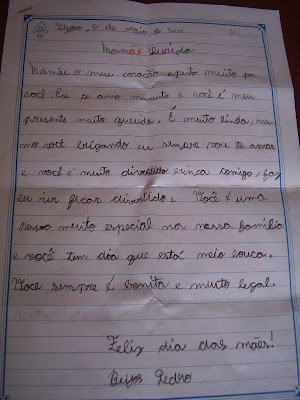 6 de maio de
Mamãe Querida
Mamãe o meu coração aperta muito por
você. Eu te amo muuuto e você é meu
presente muito querido. É muito linda, mes
mo você brigando eu sempre vou te amar
e você é muito divertido brinca comigo, faz
eu rir ficar divertido e Você é uma
pessoa muito especial na nossa família
e você tem dia que está meio louca.
Voce sempre é bonita e muto legal.
Feliz dia das mães!
Beijos Pedro